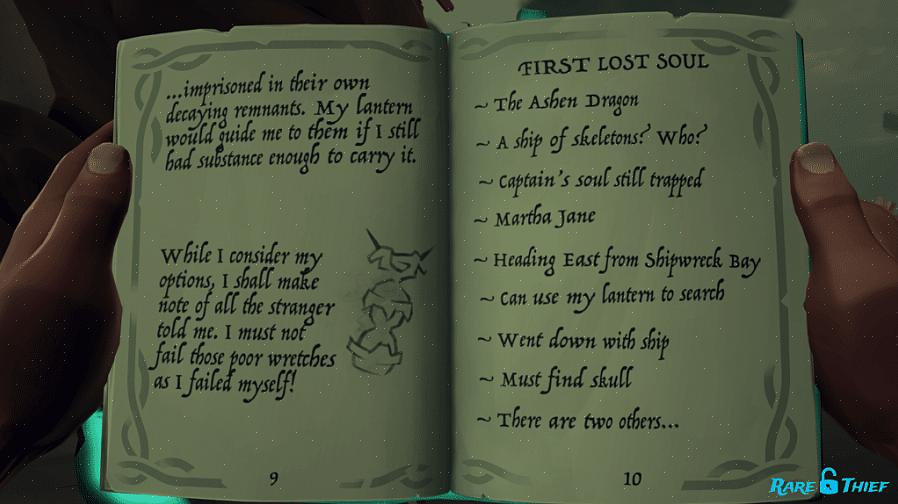 ...imprisoned in their own
decaying remnants. My lantern
would guide me to them if I still
had substance enough to carry it.
While I consider my
options, I shall make
note of all the stranger
told me. I must not
fail those poor wretches
as I failed myself!
9
FIRST LOST SOUL
~ The Ashen Dragon
~ A ship of skeletons? Who?
~ Captain's soul still trapped
~ Martha Jane
~ Heading East from Shipwreck Bay
~ Can use my lantern to search
~ Went down with ship
~ Must find skull
~ There are two others...
10
RARE THIEF